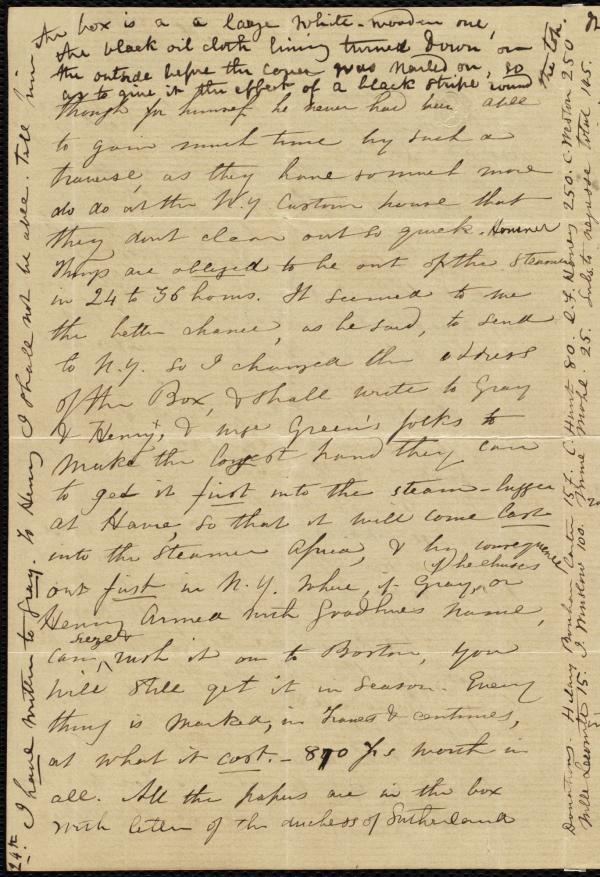 The box is a a large white-wooden one,
the black oil cloth lining turned down on
the outside before the cover was nailed on, so
as to give it the effect of a black stripe round
the top.
though for himself he never had been able
to gain much time by such a
traverse, as they have so much more
do do at the N.Y Custom house that
they dont clean out so quick. However
things are obliged to be out of the steamer
in 24 to 36 hours. It seemed to me
the better chance, as he said, to send
to N.Y. so I changed the address
of the Box, & shall write to Gray
& Henry, & urge Green's folks to
make the longest hand they can
to get it first into the steam-lugger
at Havre, so that it will come last
into the Steamer Africa, & by consequence
out first in N.Y. Where, if Gray, or
if he chuses
Henry armed with Goodhues name,
can, seize & rush it on to Boston, you
will still get it in season. Every
thing is marked, in francs & centimes,
at what it cost. - 870 frs worth in
all. All the papers are in the box
with letter of the duchess of Sutherland
24th. I have written to Gray. To Henry I shall not be able. Tell him
Donations. Hilary Bonham Carter 157. C. Hunt 80. R. F. Henry 250. C. Weston 250
Mlle Lecomte 15. J. Winslow 100. Mohl. 25. Total 165.